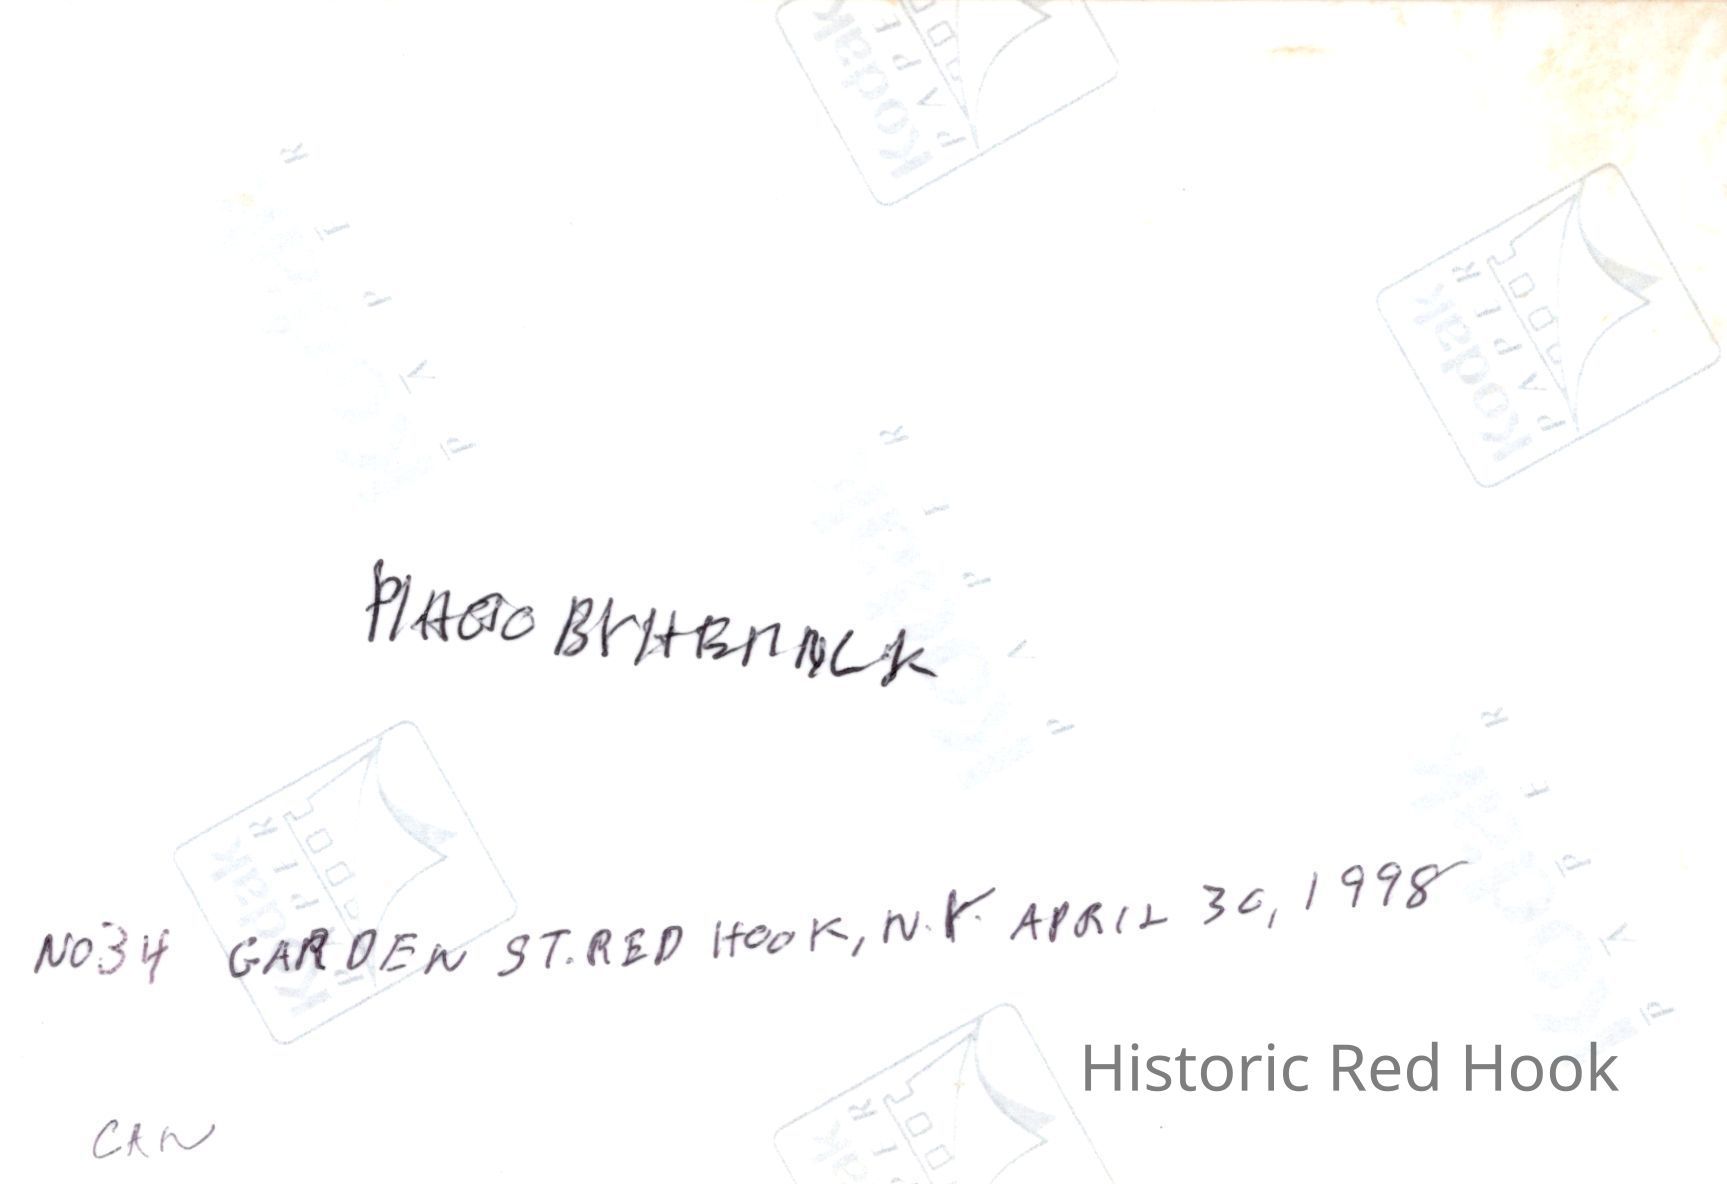 Kodak
PAPER
Kodak
PAPER
Kodak
PAPER
Kodak
PAPER
PHOTO BY
Kodak
PAPER
Kodak
PAPER
NO.34 GARDEN ST. RED HOOK, N.Y. APRIL 30, 1998
Historic Red Hook
CAN